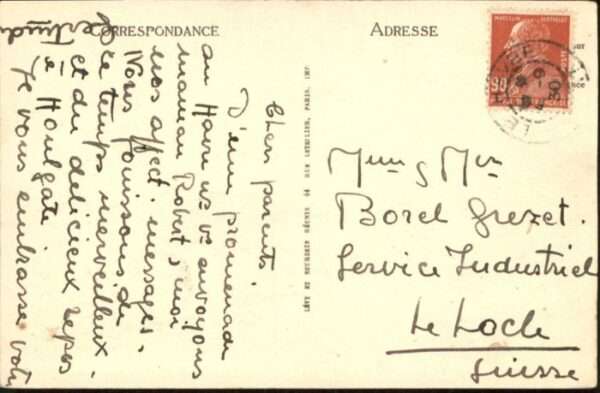 CORRESPONDANCE
ADRESSE
Chers parents.
D'une promenade
au Havre ns vs envoyons
maman Robert, moi
nos affect. messages.
Nous jouissons de
ce temps merveilleux.
et du délicieux repos
à Houlgate
Je vous embrasse votre
Mme & Mr
Borel Grezet.
Service Industriel
Le Locle
Suisse
LÉVY ET NEURDEIN RÉUNIS 44 RUE LETELLIER, PARIS. IMP.
90